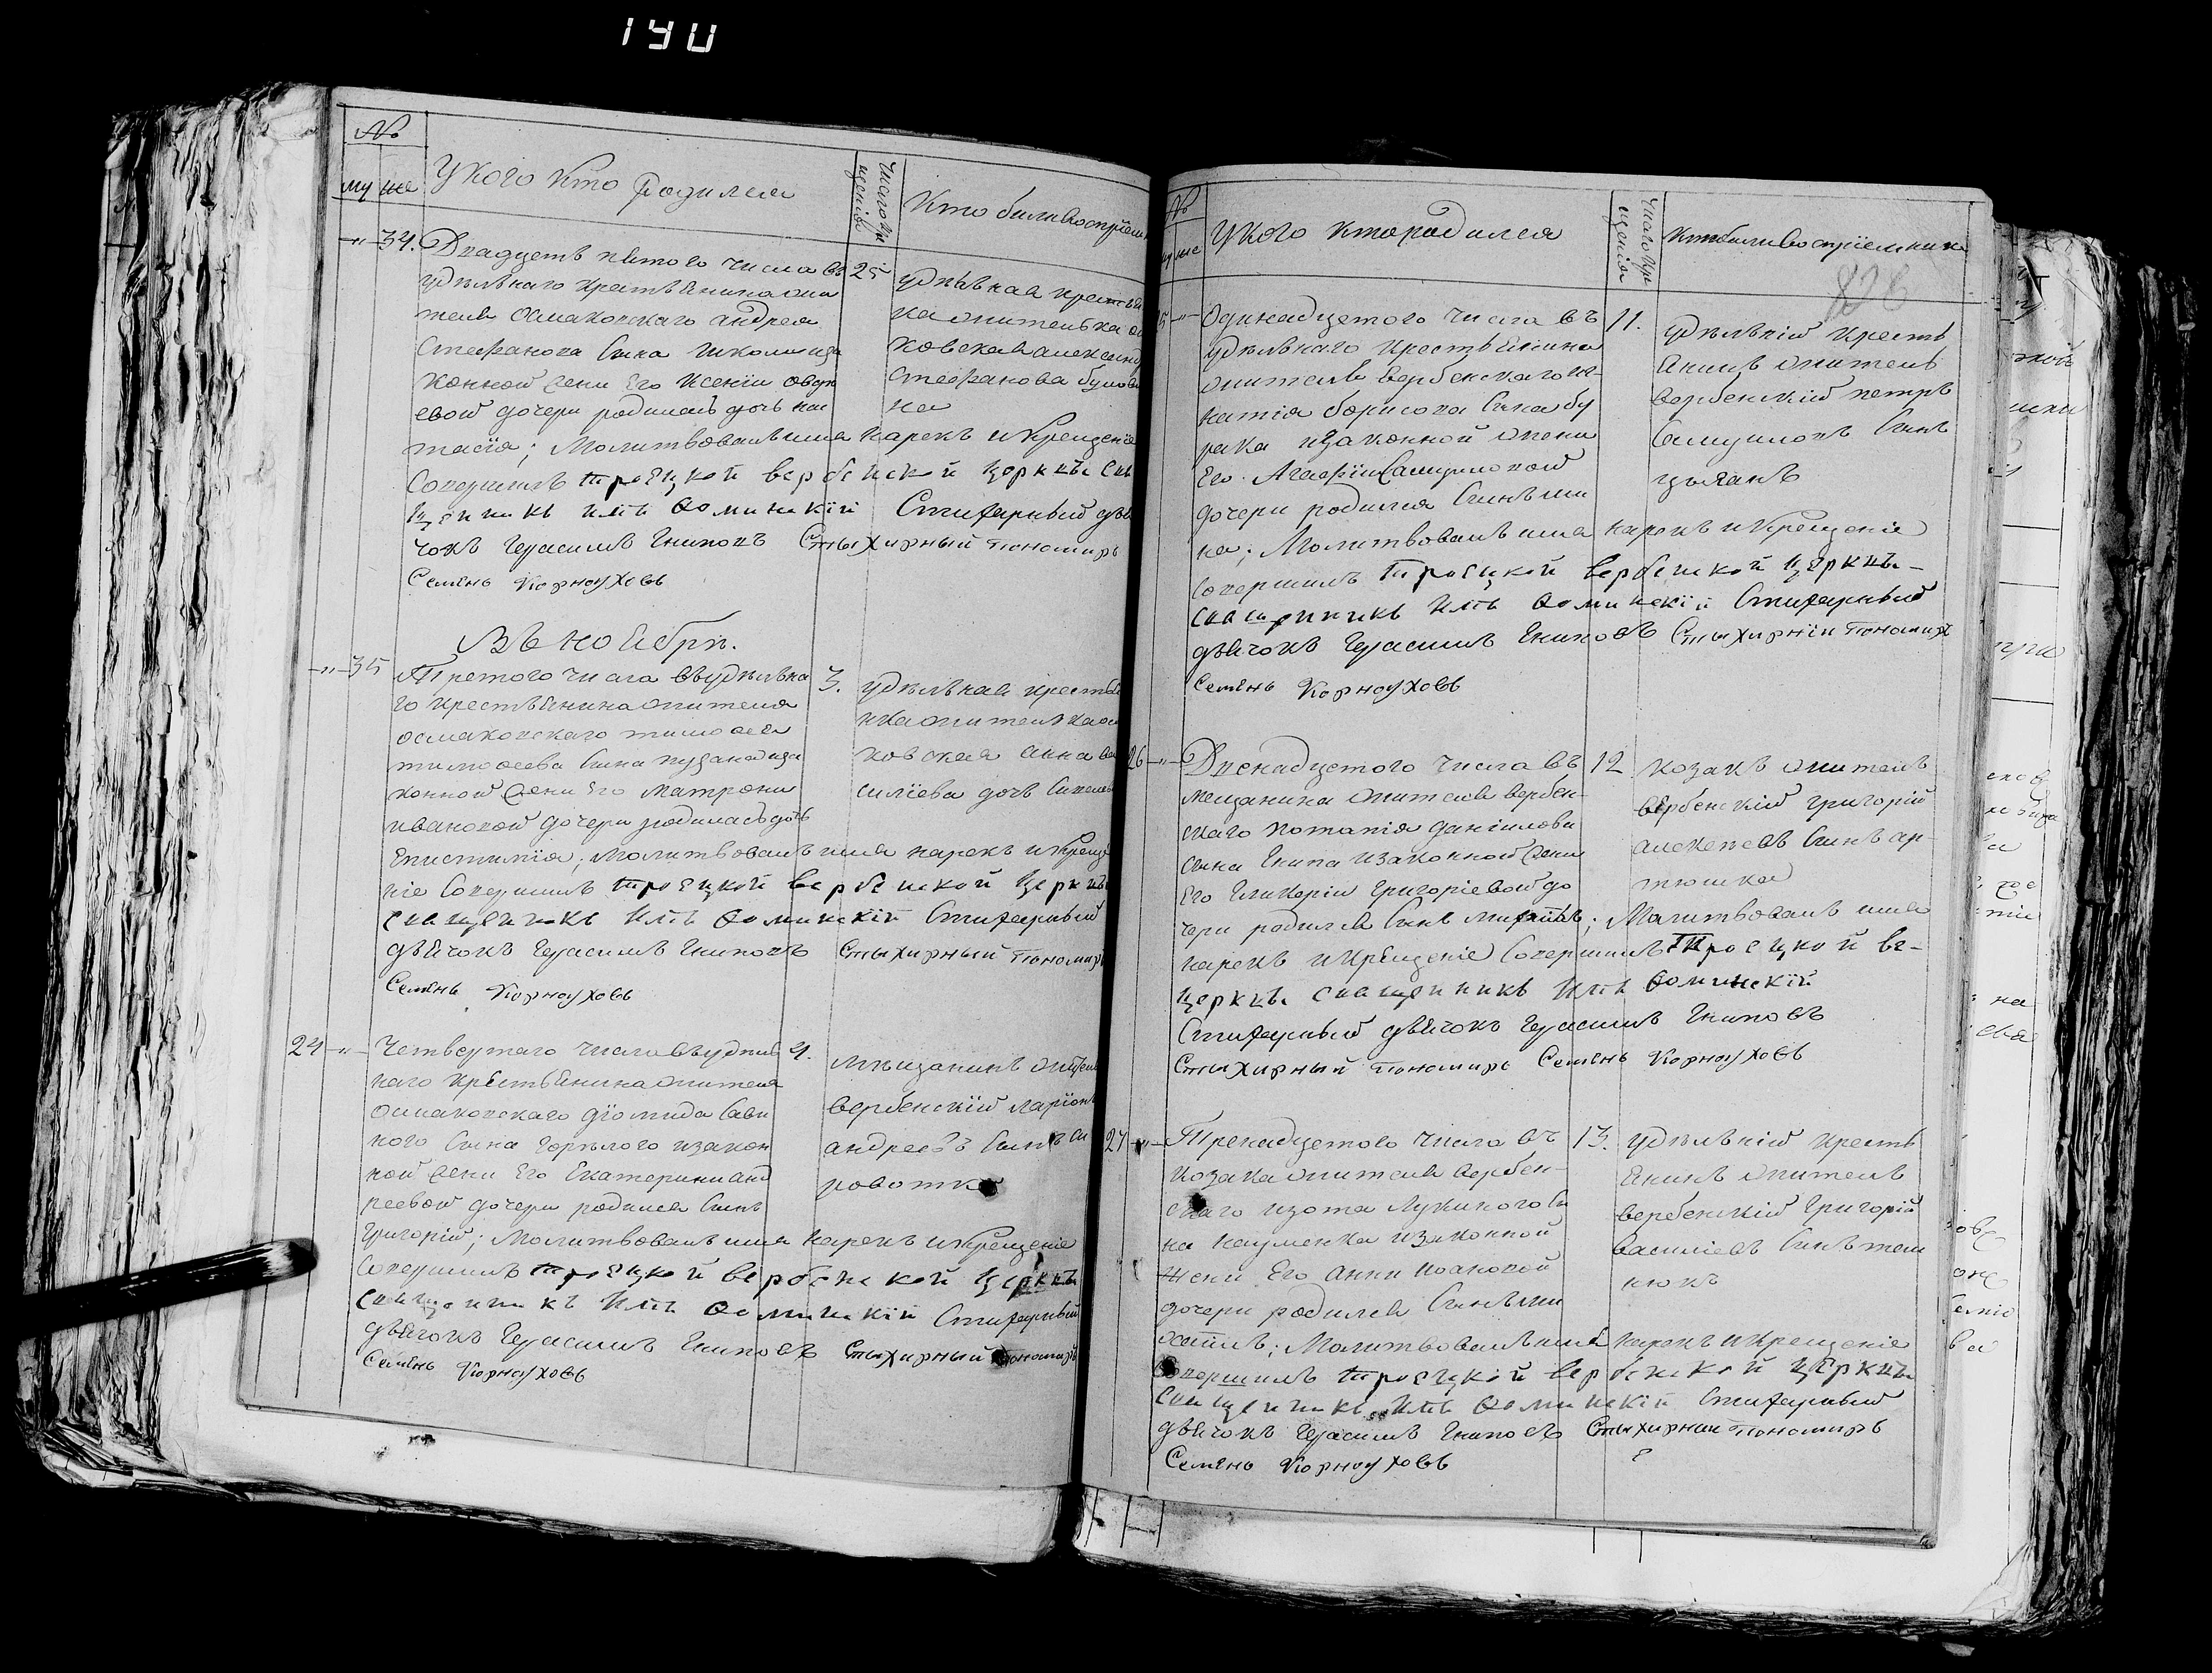 190
№
му же
У кого кто родился
Число кре
щенія
Кто были воспріем
34. Двадцеть пятого числа въ
удѣльнаго крестьянина жи
теля Осмаковскаго андрея
Стефанова сына
конной жены Его Ксеніи
евой дочери родилась дочь нас
тасія; Молитвовалъ имя нарекъ и крещеніе
Совершилъ троецкой вербенской церкви
щенникъ Фоминскій Стихарный
чокъ Герасимъ Книповъ Стыхирный пономарь
Семенъ Корноуховъ
25
удѣльная крестья
на жителька
ковская
Стефанова
на
Въ ноябри.
35
Третого числа въ удѣльна
го крестьянина жителя
осмаковскаго тимофея
тимофеева сына
конной жены Его Матрони
ивановой дочери родилась дочь
Епистимія; Молитвовалъ имя нарекъ и креще
ніе Совершилъ троецкой вербенской церкви
священникъ Фоминскій Стихарный
дьячокъ Герасимъ Книповъ Стыхирный пономарь
Семенъ Корноуховъ
3.
удѣльная крестья
нка жителька
ковская анна ва
силіева дочь
24
Четвертаго числа въ удѣль
наго крестьянина жителя
Осмаковскаго діомида Сави
ного сына Горѣлого изакон
ной жены Его Екатерини анд
реевой дочери родился сынъ
Григорій; Молитвовалъ имя нарекъ и крещеніе
Совершилъ троецкой вербенской церкви
священникъ Фоминскій Стихарный
дьячокъ Герасимъ Книповъ Стыхирный пономарь
Семенъ Корноуховъ
4.
мещанинъ жител
вербенскій ларіонъ
андреевъ сынъ си
ровотка
№
же
У кого кто родился
Число кре
щенія
Кто были воспріемники
826
Одинадцетого числа въ
удѣльнаго крестьянина
жителя вербенскаго иг
натія борисова сына бу
рака изаконной жени
Его Агафіи Самуиловой
дочери родился сынъ ми
на; Молитвовалъ имя нарекъ и крещеніе
Совершилъ троецкой вербенской церкви
священникъ Фоминскій Стихарный
дьячокъ Герасимъ Книповъ Стыхирній пономарь
Семенъ Корноуховъ
11.
удѣльній кресть
янинъ житель
вербенскій петръ
Самуиловъ сынъ
цыганъ
26
Двенадцетого числа въ
мещанина жителя вербен-
скаго потапія даніилова
сына Книпа изаконной жени
Его Гликеріи Григоріевой до
чери родился сынъ; Молитвовалъ имя
нарекъ и крещеніе Совершилъ Троецкой ве-
церкви священникъ Фоминскій
Стихарный дьячокъ Герасимъ Книповъ
Стыхирный пономарь Семенъ Корноуховъ
12
козакъ житель
вербенскій григорій
алексеевъ сынъ ар-
тюшка
27
Тренадцетого числа въ
козака жителя вербен-
скаго изота Лукиного сы
на науменка изаконной
жени Его анни Ивановой
дочери родился сынъ ми
хаилъ; Молитвовалъ имя нарекъ и крещеніе
Совершилъ троецкой вербенской церкви
священникъ Фоминскій Стихарный
дьячокъ Герасимъ Книповъ Стыхирній пономарь
Семенъ Корноуховъ
13.
удѣльній кресть
янинъ житель
вербенскій Григорій
василіевъ сынъ
нюкъ